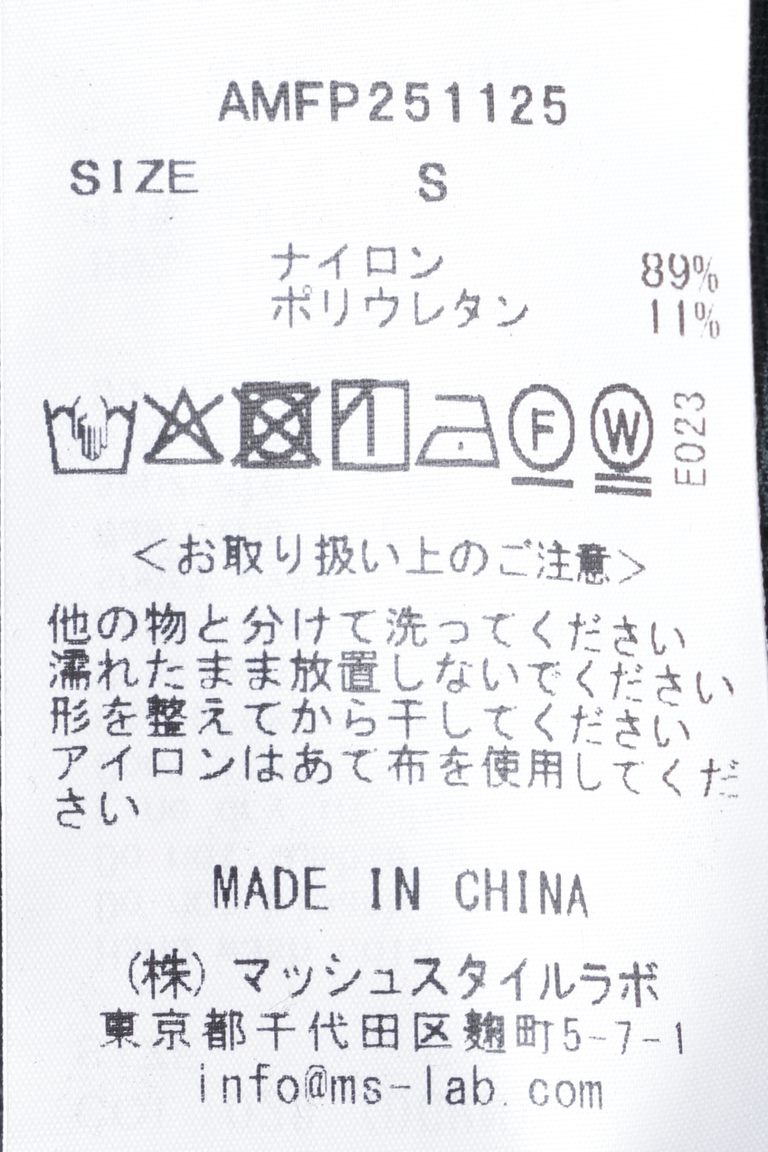 AMFP251125
SIZE S
ナイロン 89%
ポリウレタン 11%
F W E023
＜お取り扱い上のご注意＞
他の物と分けて洗ってください
濡れたまま放置しないでください
形を整えてから干してください
アイロンはあて布を使用してくだ
さい
MADE IN CHINA
(株)マッシュスタイルラボ
東京都千代田区麹町5-7-1
info@ms-lab.com